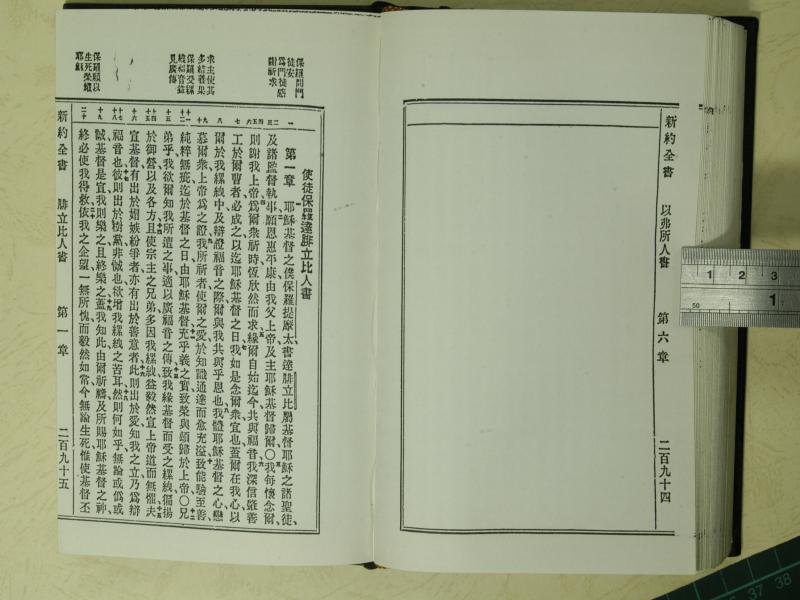 新約全書 以弗所人書 第六章 二百九十四
保羅問門
徒安
爲門徒感
謝祈求
求主使其
多結善果
保羅受縲
絏福音益
見廣傳
保羅願以
生死榮耀
耶穌
使徒保羅達腓立比人書
第一章 耶穌基督之僕保羅提摩太書達腓立比屬基督耶穌之諸聖徒
及諸監督執事願恩惠平康由我父上帝及主耶穌基督歸爾〇我每懷念爾
則謝我上帝爲爾衆祈時恆欣然而求緣爾自始迄今共與福音我深信肇善
工於爾曹者必成之以迄耶穌基督之日我如是念爾衆宜也蓋爾在我心以
爾於我縲絏中及辯證福音之際爾與我共與乎恩也我體耶穌基督之心戀
慕爾衆上帝爲之證我所祈者使爾之愛於知識通達而愈充溢致能驗至善
純粹無疵迄於基督之日由耶穌基督充乎義之實致榮與頌歸於上帝〇兄
弟乎我欲爾知我所遭之事適以廣福音之傳致我緣基督而受之縲絏徧揚
於御營以及各方且使宗主之兄弟多因我縲絏益毅然宣上帝道而無懼夫
宣基督有出於媢嫉紛爭者亦有出於善意者此則出於愛知我之立乃爲辯
福音也彼則出於樹黨非誠也欲增我縲絏之苦耳然則何如乎無論或僞或
誠基督是宣我則樂之且終樂之蓋我知此由爾祈禱及所賜耶穌基督之神
終必使我得救依我之企望一無所愧而毅然如常今無論生死惟使基督丕
新約全書 腓立比人書 第一章 二百九十五